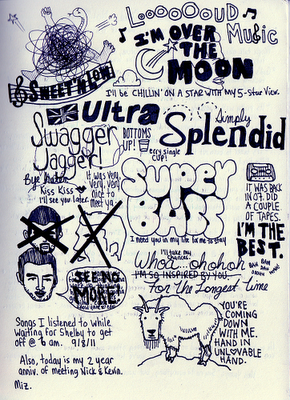 LOOOOOOUD
MUSIC
I'M OVER
THE
MOON
SWEET 'N LOW!
I'll be CHILLIN' ON A STAR WITH MY 5-STAR View.
Ultra
Simply
Splendid
Swagger
Jagger!
BOTTOMS
UP!
every single
cup!
Bye hater
Kiss Kiss
I'll see you later
It was very
very, very
nice to
meet ya
SUPER
BASS
IT WAS BACK
IN 07. DID
A COUPLE
OF TAPES.
I'M THE
BEST.
I need you in my life for me to stay
SEE NO
MORE!
I'll take my
chances!
Whoa-ohohoh
I'M SO INSPIRED BY YOU
For The Longest Time
YOU'RE
COMING
DOWN
WITH ME.
HAND IN
UNLOVABLE
HAND.
Songs I listened to while
waiting for Shelby to get
off @ 6 am. 9/8/11
Also, today is my 2 year
anniv. of meeting Nick & Kevin.
Miz.